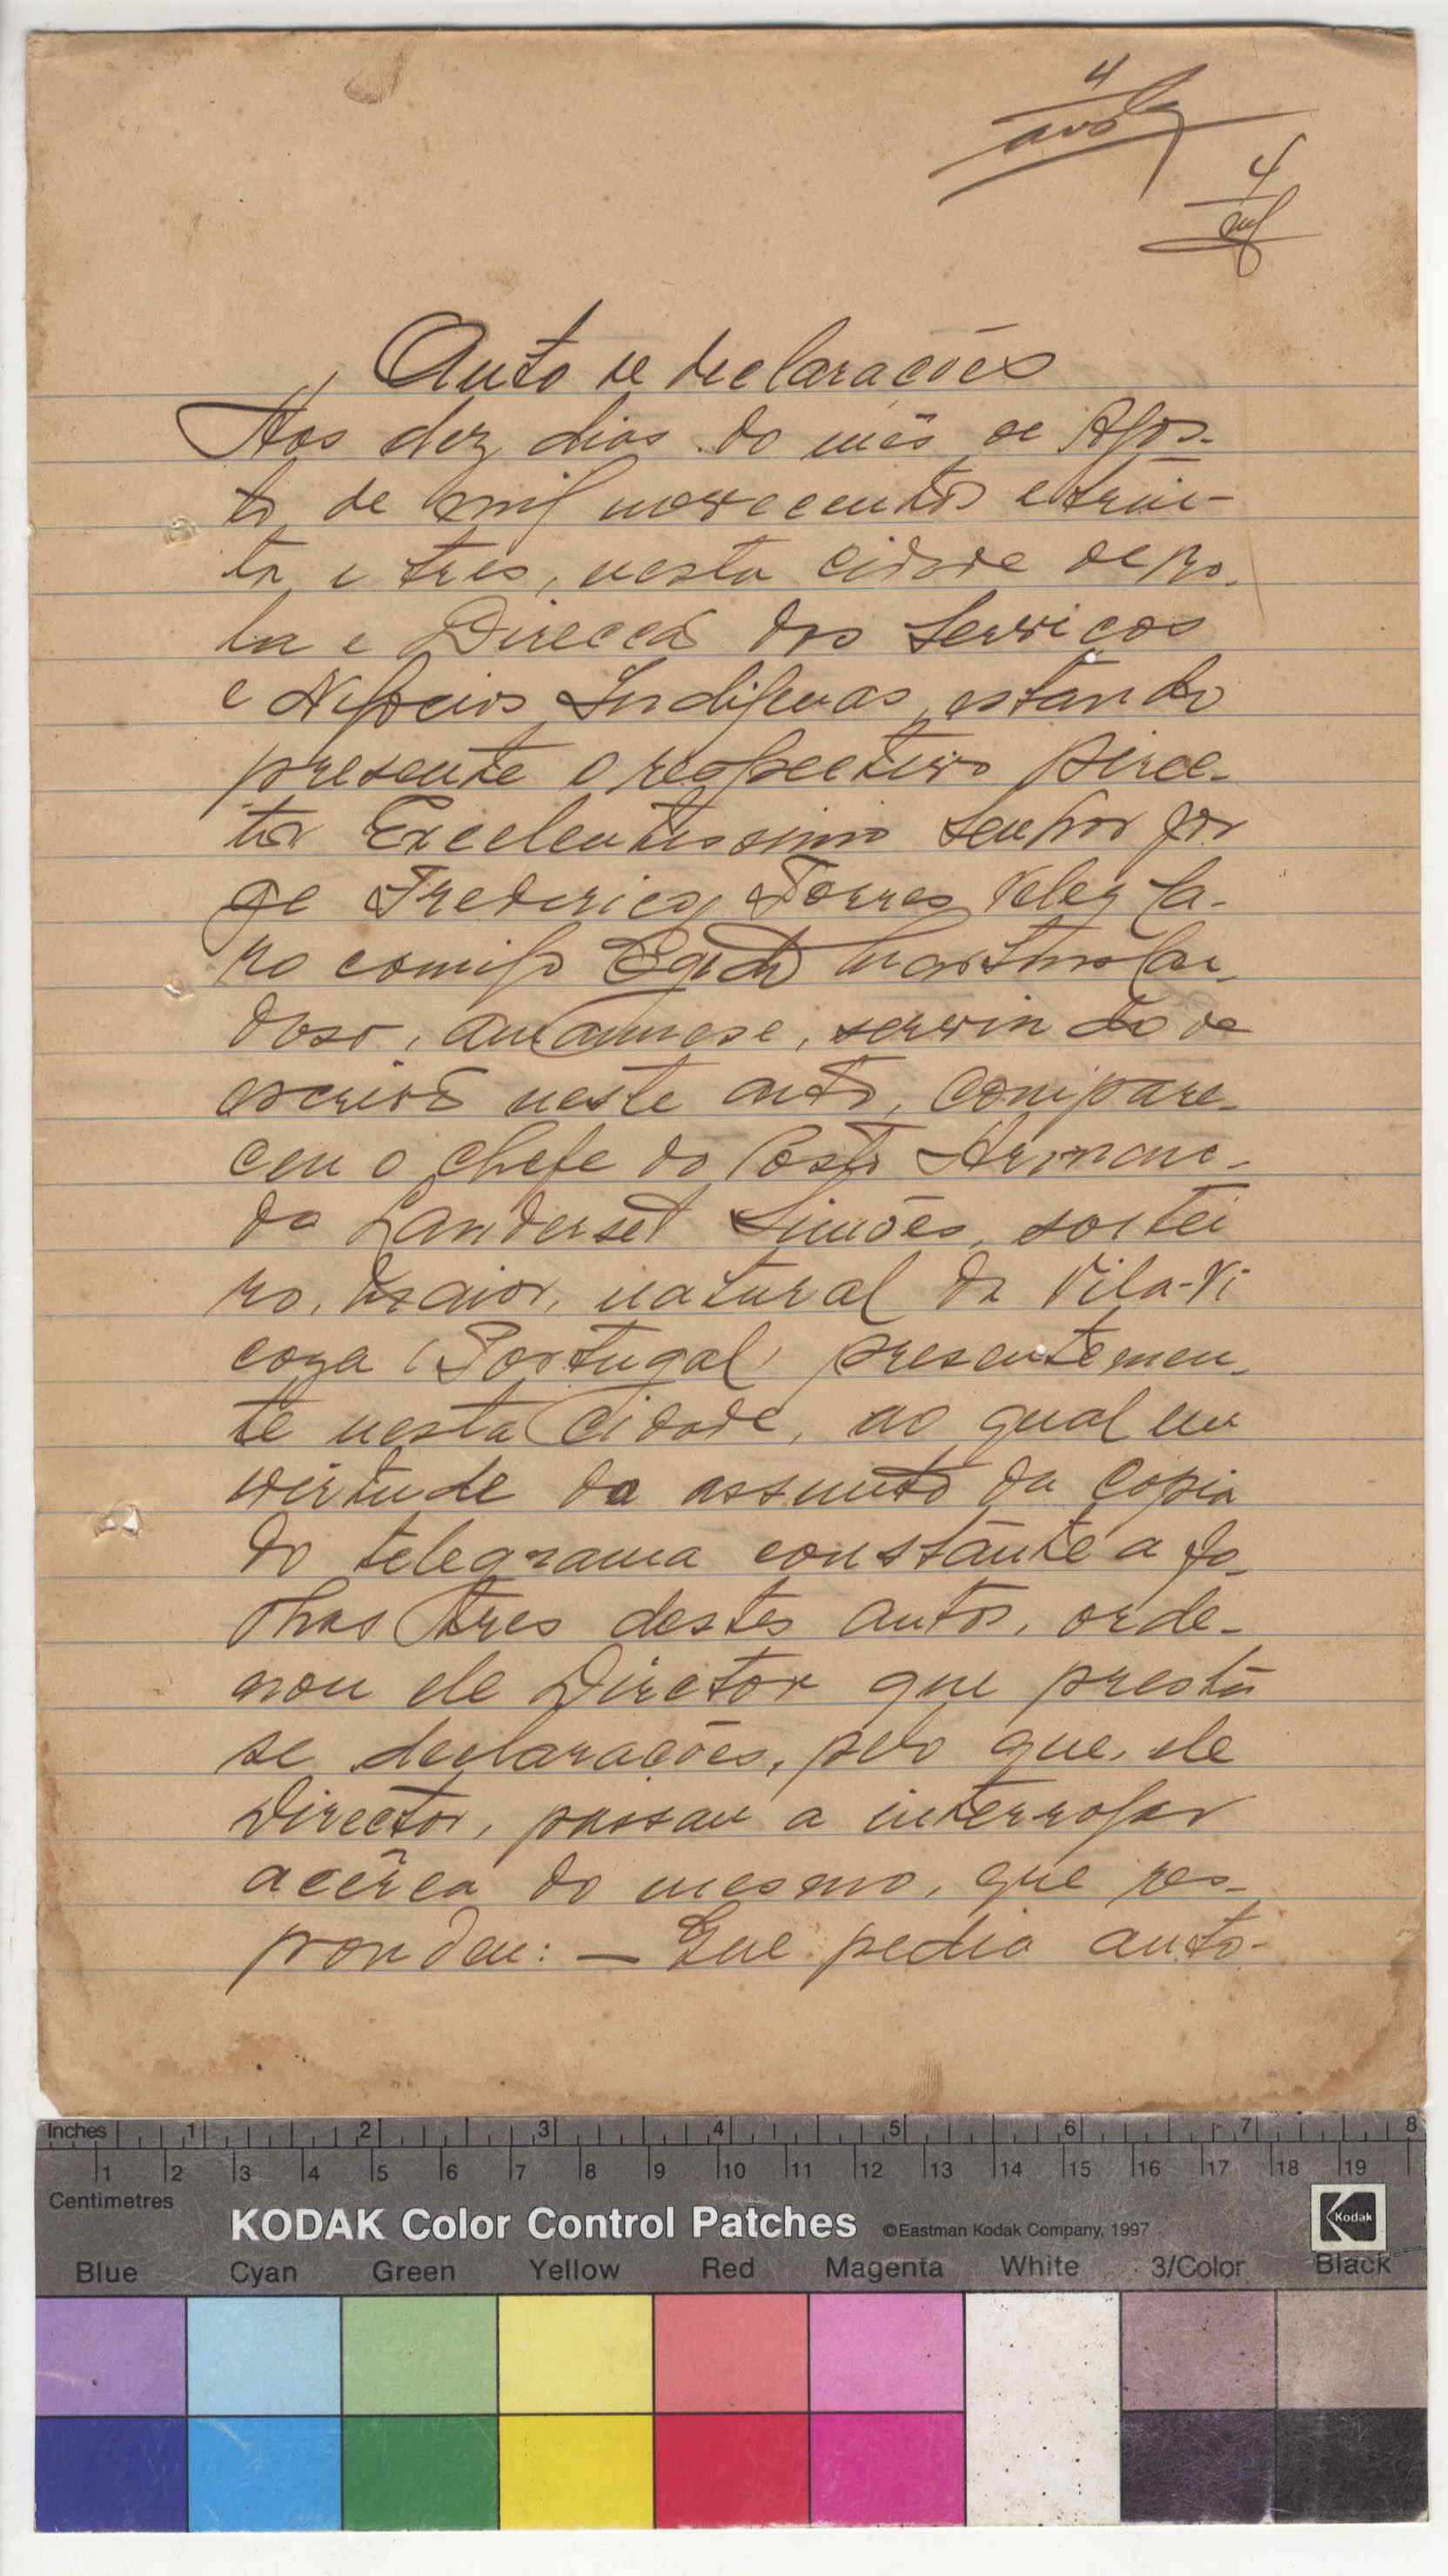 4
4
Auto de declarações
Aos dez dias do mês de Agos-
to de mil novecentos e trin-
ta e tres, nesta cidade de Bo-
la e Direccã dos Serviços
e Negocios Indigenas, estando
presente o respectivo Direc-
tor Excelentissimo Senhor Jor
ge Frederico Torres Velez Ca-
ro comigo
doso, amanuese, servindo de
escrivã neste auto, compare-
ceu o chefe do Posto Arman-
do Landerset Simões, soltei
ro, maior, natural de Vila-Vi
coza (Portugal) presentemen-
te nesta Cidade, ao qual em
virtude do assunto da copia
do telegrama constante a fo-
lhas tres destes autos, orde-
nou ele Director que prestas
se declarações, pelo que, ele
Director, passou a interrogar
acêrca do mesmo, que res-
pondeu: — Que pedia auto-
Inches 1 2 3 4 5 6 7 8
1 2 3 4 5 6 7 8 9 10 11 12 13 14 15 16 17 18 19
Centimetres
KODAK Color Control Patches ©Eastman Kodak Company, 1997 Kodak
Blue Cyan Green Yellow Red Magenta White 3/Color Black